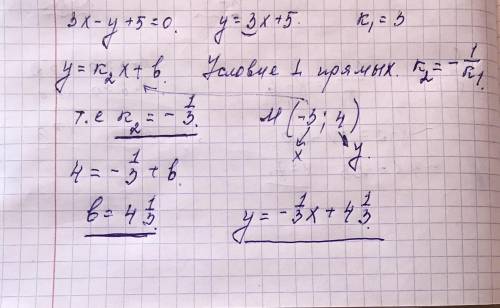 3x-y+5=0. y=3x+5. k₁=3
y=k₂x+b. Условие ⊥ прямых. k₂=-1/k₁.
т.е k₂=-1/3. M(-3; 4)
x y.
4=-1/3+b.
b=4 1/3 y=-1/3x+4 1/3